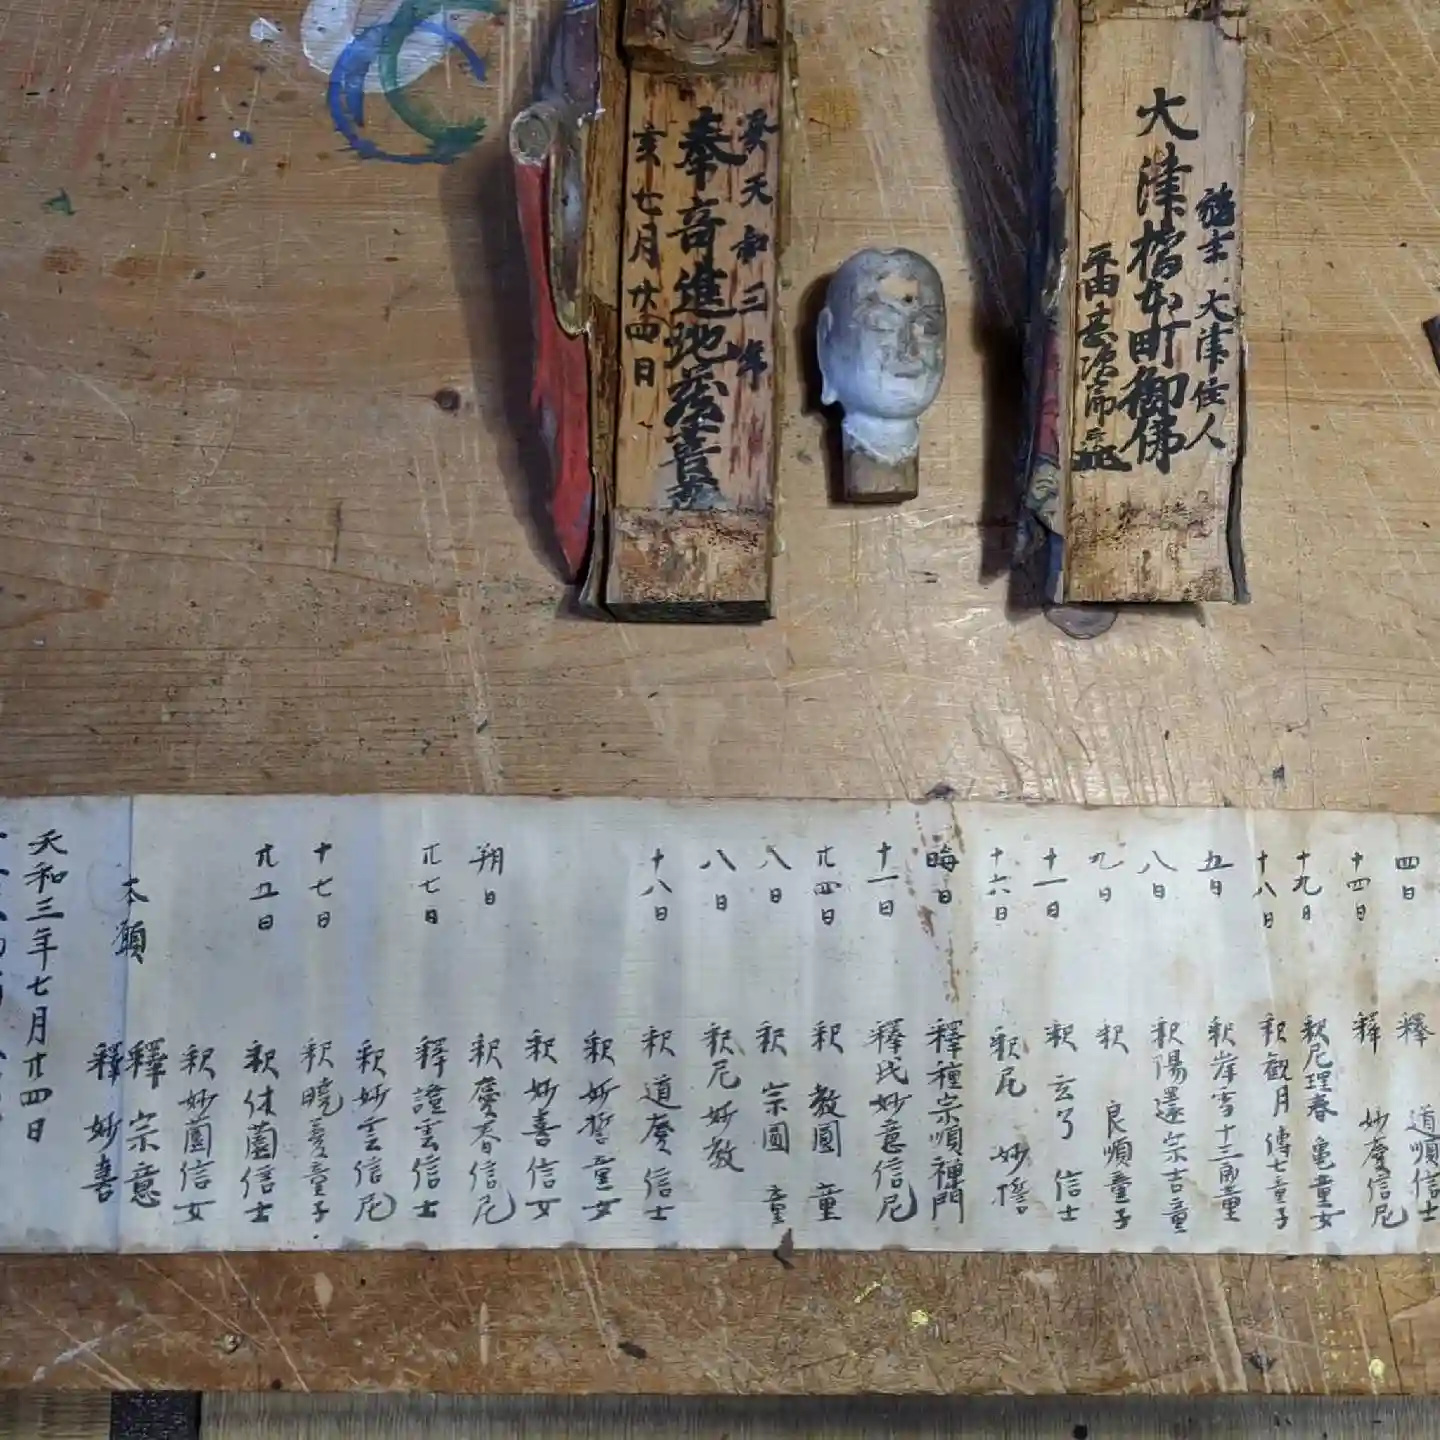 天和三年
奉寄進地蔵菩薩
亥七月廿四日
施主 大津住人
大津檜木町御佛
四日 釋 道順信士
十四日 釋 妙慶信尼
十九日 釈尼理春 亀童女
十八日 釈觀月 傳七童子
五日 釈岸雪 十三郎童
八日 釈陽還 宗吉童
九日 釈 良順童子
十一日 釈 玄了 信士
十六日 釈尼 妙
晦日 釋種宗順禅門
十一日 釋氏妙意信尼
廿四日 釈 教圓 童
八日 釈 宗圓 童
八日 釈尼妙教
十八日 釈 道慶 信士
釈妙誓童女
釈妙善信女
朔日 釈慶春信尼
廿七日 釋證雲信士
釈妙雲信尼
十七日 釈曉夢童子
廿五日 釈休薗信士
釈妙薗信女
本願 釋 宗意
釋 妙喜
天和三年七月廿四日